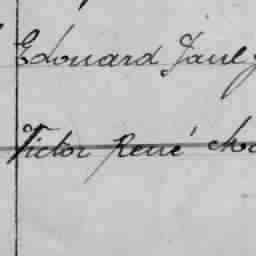 Edouard Paul
Victor René